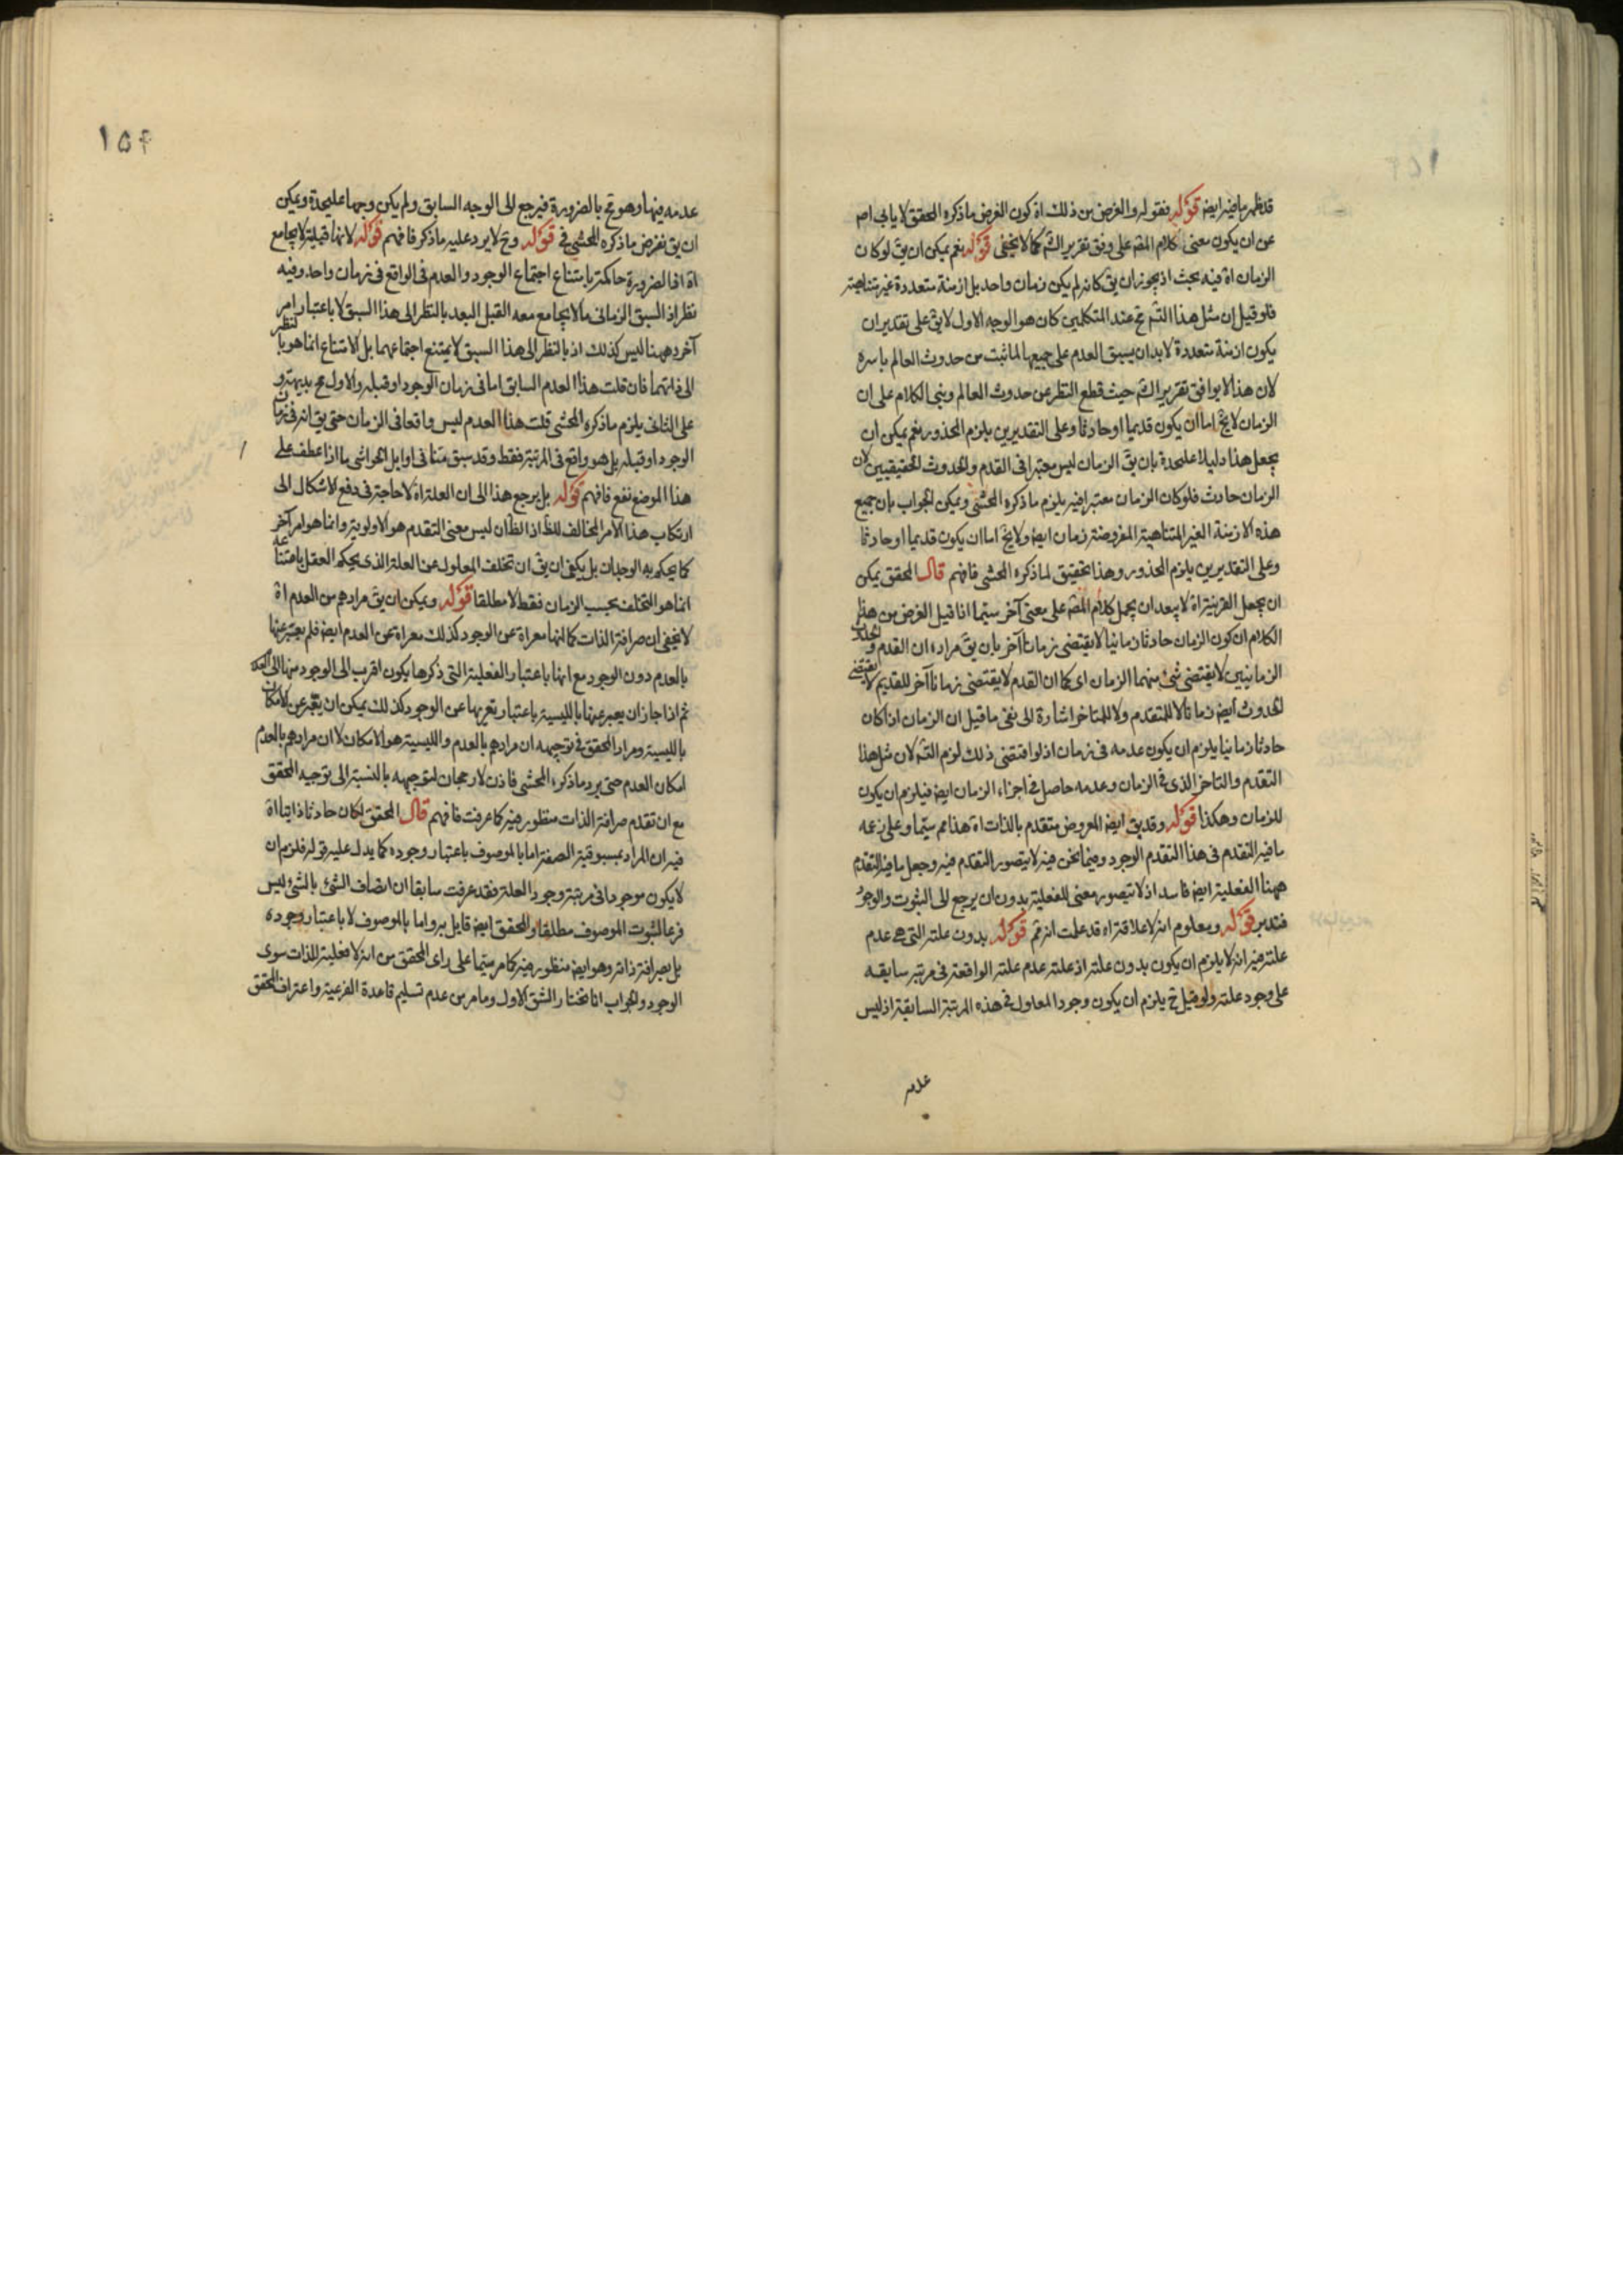 قد ظهر ما فيه ايض قوله فنقوله والغرض من ذلك اه كون الغرض ما ذكره المحقق لا يابى اصم
عن ان يكون معنى كلام المص على وفق تقرير الش كما لا يخفى قوله نعم يمكن ان يق لو كان
الزمان اه فيه بحث اذ يجوز ان يق كانه لم يكن زمان واحد بل ازمنة متعددة غير متناهية
فلو قيل ان مثل هذا التسم مح عند المتكلمين كان هو الوجه الاول لا يق على تقدير ان
يكون ازمنة متعددة لا بد ان يسبق العدم على جميعها لما ثبت من حدوث العالم باسره
لان هذا لا يوافق تقرير الش حيث قطع النظر عن حدوث العالم وبنى الكلام على ان
الزمان لا يخ اما ان يكون قديما او حادثا وعلى التقديرين يلزم المحذور نعم يمكن ان
يجعل هذا دليلا عليحدة بان يق الزمان ليس معتبرا فى القدم والحدوث الحقيقيين لان
الزمان حادث فلو كان الزمان معتبرا فيه يلزم ما ذكره المحشى ويمكن الجواب بان جميع
هذه الازمنة الغير المتناهية المفروضة زمان ايض ولا يخ اما ان يكون قديما او حادثا
وعلى التقديرين يلزم المحذور وهذا تحقيق لما ذكره المحشى فافهم قال المحقق يمكن
ان يجعل القرينة اه لا يبعد ان يحمل كلام المص على معنى آخر سيما اذا قيل الغرض من هذا
الكلام ان كون الزمان حادثا زمانيا لا يقتضى زمانا آخر بان يق مراده ان القدم والحدوث
الزمانيين لا يقتضى شئ منهما الزمان اى كما ان القدم لا يقتضى زمانا آخر للقديم لا يقتضى
الحدوث ايض زمانا لا للمتقدم ولا للمتاخر اشارة الى نفى ما قيل ان الزمان اذا كان
حادثا زمانيا يلزم ان يكون عدمه فى زمان اذ لو اقتضى ذلك لزم التسم لان مثل هذا
التقدم والتاخر الذى فى الزمان وعدمه حاصل فى اجزاء الزمان ايض فيلزم ان يكون
للزمان وهكذا قوله وقد يق ايض المعروض متقدم بالذات اه هذا مم سيما وعلى زعمه
ما فيه التقدم فى هذا التقدم الوجود وفيما نحن فيه لا يتصور التقدم فيه وجعل ما فيه التقدم
ههنا الفعلية ايض فاسد اذ لا تصور معنى للفعلية بدون ان يرجع الى الثبوت والوجود
فتدبر قوله ومعلوم انه لا علاقة اه قد علمت انه ثم قوله بدون علته التى هى عدم
علته فيه انه لا يلزم ان يكون بدون علته اذ علته عدم علته الواقعة فى مرتبة سابقة
على وجود علته ولو قيل ح يلزم ان يكون وجود المعلول فى هذه المرتبة السابقة اذ ليس
عدمه
١٥٤
عدمه فيها وهو مح بالضرورة فيرجع الى الوجه السابق ولم يكن وجها عليحدة ويمكن
ان يق نفرض ما ذكره المحشى فى قوله وح لا يرد عليه ما ذكر فافهم قوله لانها قبلية لا يجامع
اه اذ الضرورة حاكمة بامتناع اجتماع الوجود والعدم فى الواقع فى زمان واحد وفيه
نظر اذ السبق الزمانى ما لا يجامع معه القبل البعد بالنظر الى هذا السبق لا باعتبار امر
آخر وههنا ليس كذلك اذ بالنظر الى هذا السبق لا يمتنع اجتماعهما بل الامتناع انما هو بالنظر
الى ذاتهما فان قلت هذا العدم السابق اما فى زمان الوجود او قبله والاول مح بديهة و
على الثانى يلزم ما ذكره المحشى قلت هذا العدم ليس واقعا فى الزمان حتى يق انه فى زمان
الوجود او قبله بل هو واقع فى المرتبة فقط وقد سبق منا فى اوايل الحواشى ما اذا عطف على
هذا الموضع نفع فافهم قوله بل يرجع هذا الى ان العلة اه لا حاجة فى دفع الاشكال الى
ارتكاب هذا الامر المخالف للظ اذ الظان ليس معنى التقدم هو الاولوية وانما هو امر آخر
كما يحكم به الوجدان بل يكفى ان يق ان تخلف المعلول عن العلة الذى يحكم العقل بامتناعه
انما هو التخلف بحسب الزمان فقط لا مطلقا قوله ويمكن ان يق مرادهم من العدم اه
لا يخفى ان صرافة الذات كما انها معراة عن الوجود كذلك معراة عن العدم ايض فلم يعتبر عنها
بالعدم دون الوجود مع انها باعتبار الفعلية التى ذكرها يكون اقرب الى الوجود منها الى العدم
ثم اذا جاز ان يعبر عنها بالليسية باعتبار تعريها عن الوجود كذلك يمكن ان يعبر عن الامكان
بالليسية ومراد المحقق فى توجيهه ان مرادهم بالعدم والليسية هو الامكان لا ان مرادهم بالعدم
امكان العدم حتى يرد ما ذكره المحشى فاذن لا رجحان لتوجيهه بالنسبة الى توجيه المحقق
مع ان تقدم صرافة الذات منظور فيه كما عرفت فافهم قال المحقق لكان حادثا ذاتيا اه
فيه ان المراد بمسبوقية الصفة اما بالموصوف باعتبار وجوده كما يدل عليه قوله فلزم ان
لا يكون موجودا فى مرتبة وجود العلة فقد عرفت سابقا ان اتصاف الشئ بالشئ ليس
فرعا لثبوت الموصوف مطلقا والمحقق ايض قايل به واما بالموصوف لا باعتبار وجوده
بل بصرافة ذاته وهو ايض منظور فيه كما مر سيما على راى المحقق من انه لا فعلية للذات سوى
الوجود والجواب انا نختار الشق الاول وما مر من عدم تسليم قاعدة الفرعية واعتراف المحقق